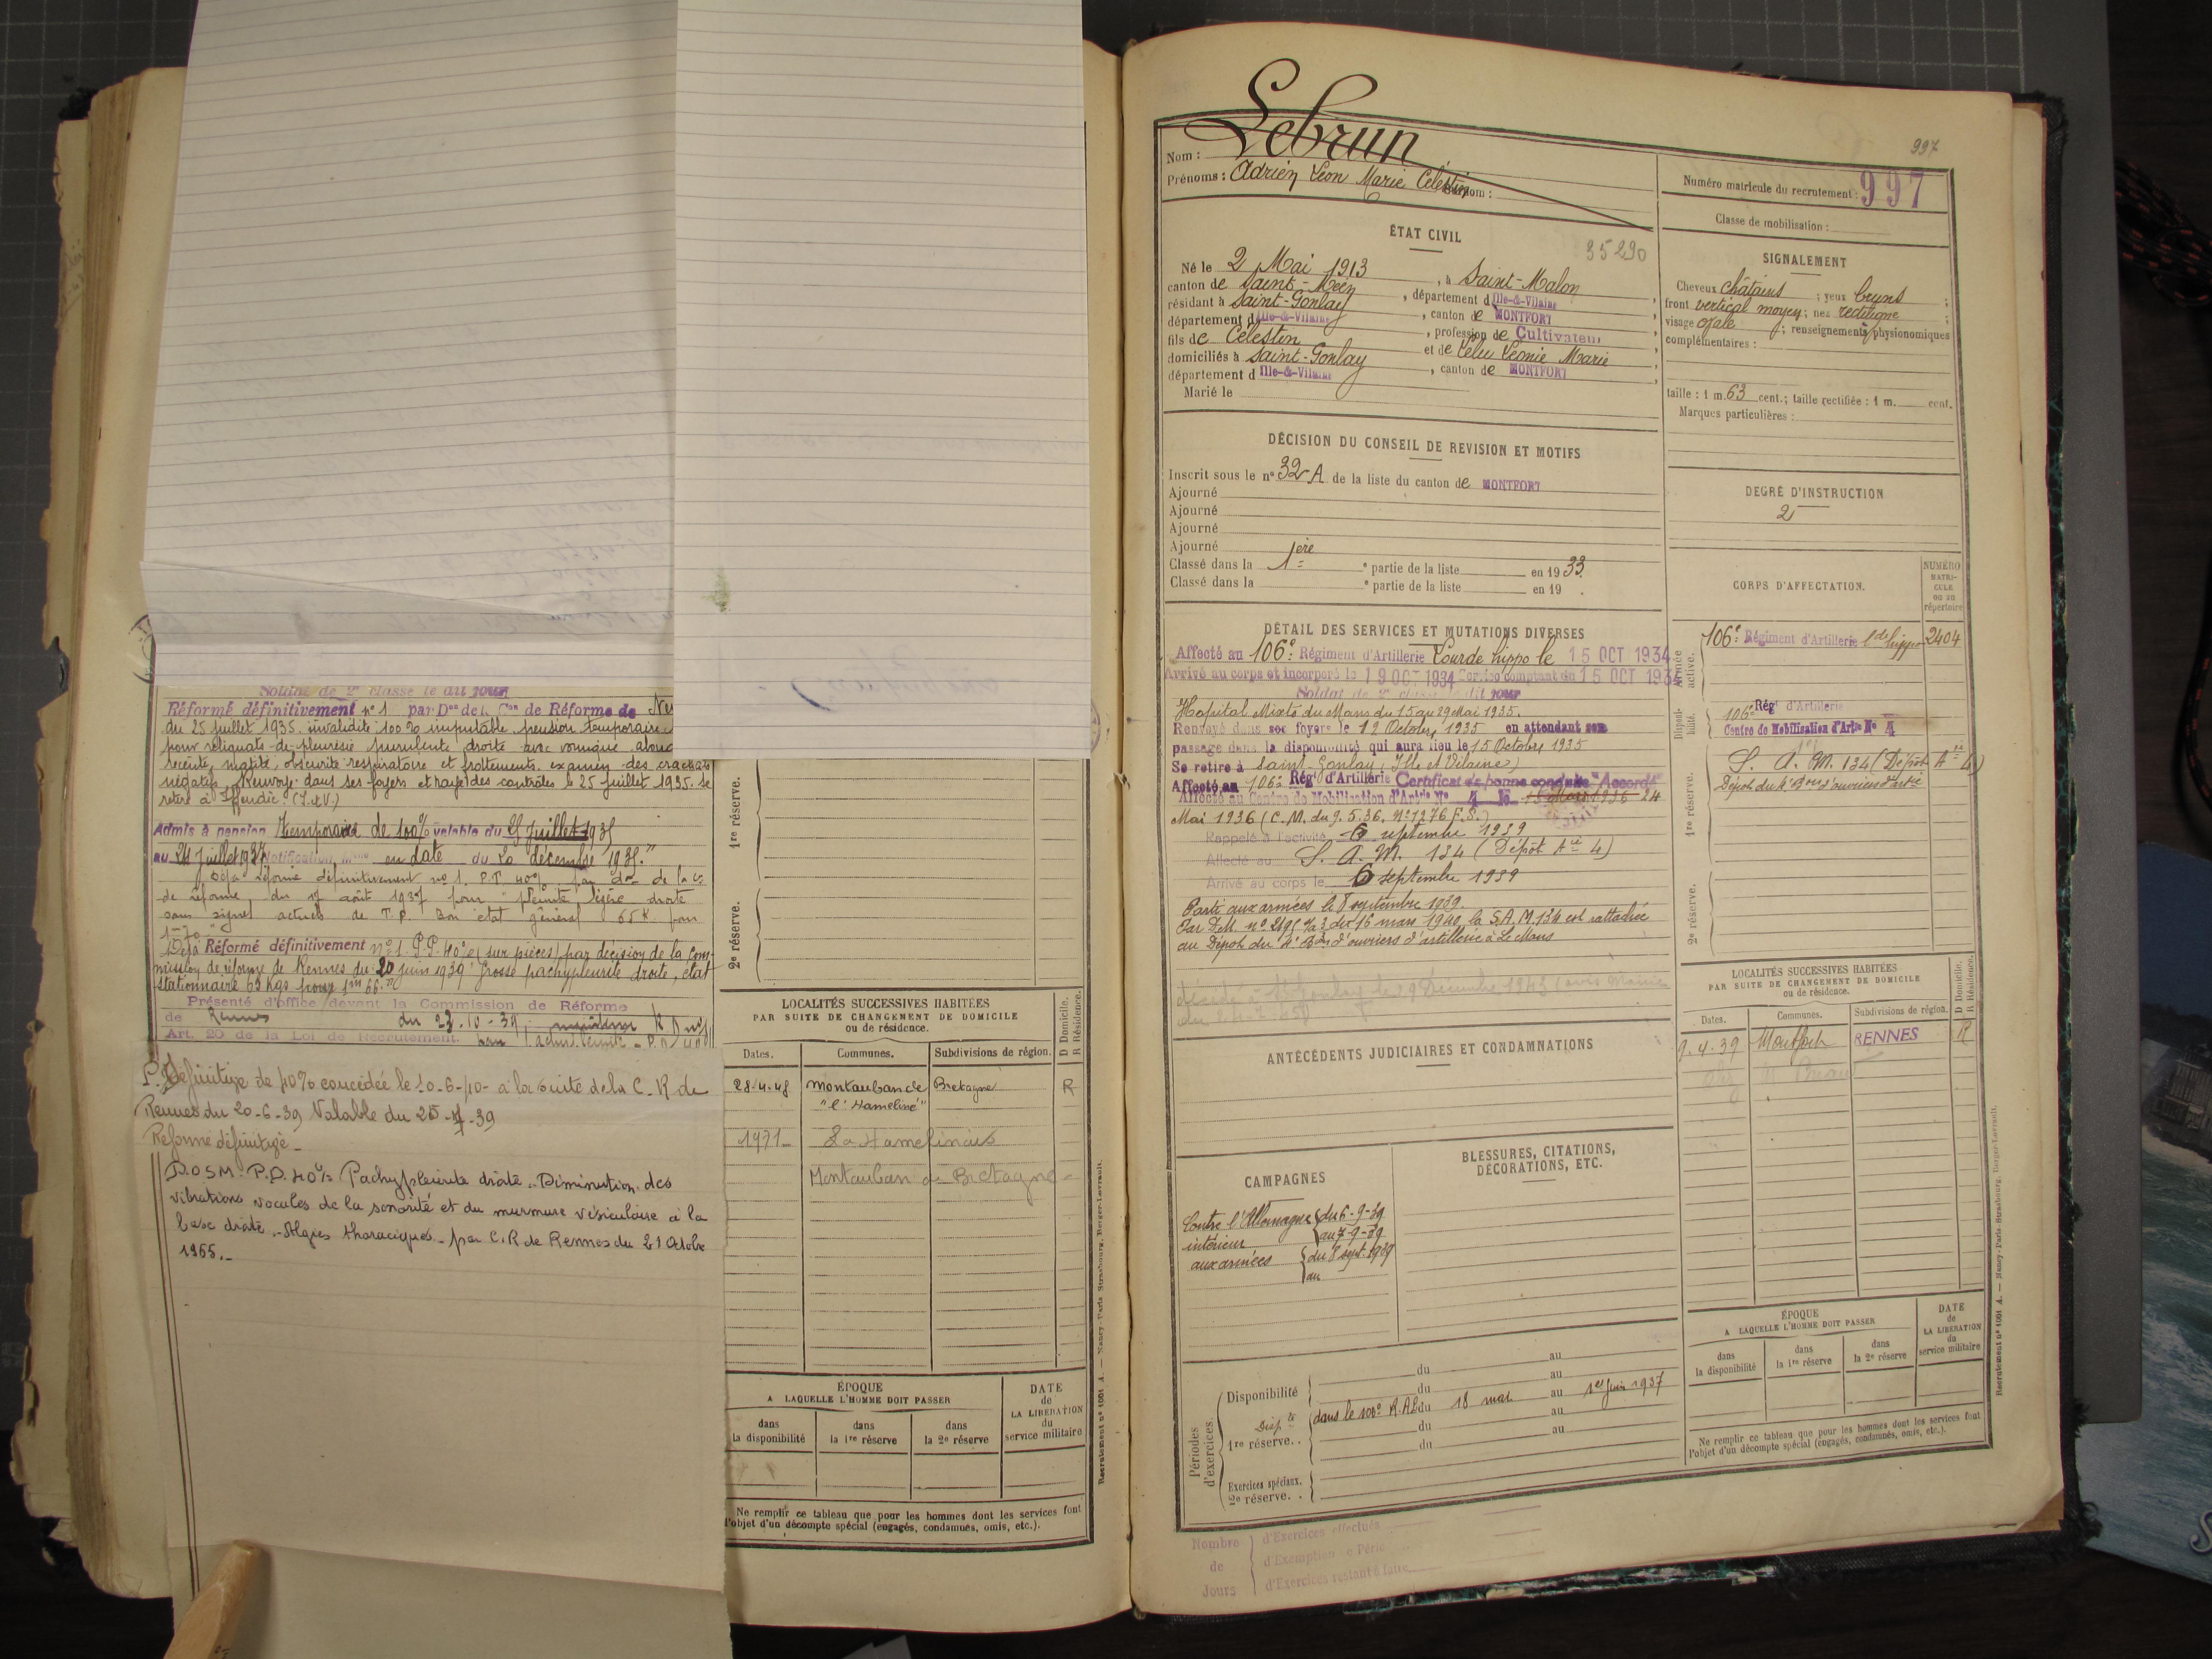 Soldat de 2e classe le dit jour
Réformé définitivement n° 1 par Don de la Con de Réforme de
du 25 juillet 1935. invalidité 100% imputable pension temporaire
pour reliquats de pleurésie purulente droite avec vomique
récente, matité, obscurité respiratoire et frottements. examen des crachats
négatifs. Renvoyé dans ses foyers et rayé des contrôles le 25 juillet 1935. Se
retire à Iffendic. (I. & V.)
Admis à pension temporaire de 100% valable du 25 Juillet 1935
au 24 Juillet 1937 Notification en date du 20 décembre 1935."
Déjà réformé définitivement no 1. P.T. 40% par don de la C.
de réforme du 17 août 1937 pour pleurite légère droite
sans signes actuels de T.P. Bon état général 65 K pour
1m70
Déjà Réformé définitivement n° 1. P.P. 40% (sur pièces) par décision de la Com-
mission de réforme de Rennes du 20 juin 1939 "Grosse pachypleurite droite, état
stationnaire 63 Kgs pour 1m 66."
Présenté d'office devant la Commission de Réforme
de Rennes du 23.10-39
Art. 20 de la Loi de Recrutement.
P. Définitive de 40% concédée le 10-6-40- à la suite de la C.R de
Rennes du 20-6-39 Valable du 25-7-39
Réforme définitive-
D.O.S.M. P.D. 40% Pachypleurite droite. Diminution des
vibrations vocales de la sonorité et du murmure vésiculaire à la
base droite. - Algies thoraciques - par C.R de Rennes du 21 Octobre
1965.-
1re réserve.
2e réserve.
LOCALITÉS SUCCESSIVES HABITÉES
PAR SUITE DE CHANGEMENT DE DOMICILE
ou de résidence.
D Domicile.
R Résidence.
Dates. Communes. Subdivisions de région.
28.4.48 Montauban de Bretagne R
"l'Hameline"
1971 La Hamelinais
Montauban de Bretagne-
ÉPOQUE
A LAQUELLE L'HOMME DOIT PASSER
DATE
de
LA LIBÉRATION
du
service militaire
dans
la disponibilité
dans
la 1re réserve
dans
la 2e réserve
Ne remplir ce tableau que pour les hommes dont les services font
l'objet d'un décompte spécial (engagés, condamnés, omis, etc.).
Recrutement n° 1001 A. — Nancy-Paris-Strasbourg, Berger-Levrault.
997
Nom : Lebrun
Prénoms : Adrien Léon Marie Célestin Surnom :
Numéro matricule du recrutement : 997
Classe de mobilisation :
ÉTAT CIVIL
35290
Né le 2 Mai 1913, à Saint-Malon
canton de Saint-Méen, département d'Ille-&-Vilaine,
résidant à Saint-Gonlay, canton de MONTFORT,
département d'Ille-&-Vilaine, profession de Cultivateur,
fils de Célestin et de Lelu Léonie Marie,
domiciliés à Saint-Gonlay, canton de MONTFORT,
département d Ille-&-Vilaine
Marié le
SIGNALEMENT
Cheveux châtains ; yeux bruns ;
front vertical moyen ; nez rectiligne ;
visage ovale ; renseignements physionomiques
complémentaires :
taille : 1 m. 63 cent.; taille rectifiée : 1 m. cent.
Marques particulières :
DÉCISION DU CONSEIL DE REVISION ET MOTIFS
Inscrit sous le n° 32 A de la liste du canton de MONTFORT
Ajourné
Ajourné
Ajourné
Ajourné
Classé dans la 1ère e partie de la liste en 1933.
Classé dans la e partie de la liste en 19 .
DEGRÉ D'INSTRUCTION
2
CORPS D'AFFECTATION.
NUMÉRO
MATRI-
CULE
ou au
répertoire
DÉTAIL DES SERVICES ET MUTATIONS DIVERSES
Affecté au 106e Régiment d'Artillerie Lourde hippo le 15 OCT 1934
Arrivé au corps et incorporé le 19 OCT 1934 Service comptant du 15 OCT 1934
Soldat de 2e classe le dit jour
Hopital Mixte du Mans du 15 au 29 Mai 1935.
Renvoyé dans ses foyers le 12 Octobre 1935 en attendant son
passage dans la disponibilité qui aura lieu le 15 Octobre 1935
Se retire à Saint-Gonlay (Ille et Vilaine)
Affecté au 106e Régt d'Artillerie Certificat de bonne conduite "Accordé"
Affecté au Centre de Mobilisation d'Artie N° 4 le 15 Mars 1936 24
Mai 1936 (C.M. du 9.5.36. N° 1276 F.S.)
Rappelé à l'activité 6 septembre 1939
Affecté au S. A. M. 134 (Dépôt Aie 4)
Arrivé au corps le 6 septembre 1939
Parti aux armées le 8 septembre 1939.
Par D.M. n° 2195 4/3 du 16 mars 1940, la S.A.M. 134 est rattachée
au Dépôt du 4e Bon d'ouvriers d'artillerie à Le Mans
décédé à St Gonlay le 29 Décembre 1943 (avis Mairie
Armée active.
106e Régiment d'Artillerie lde hippo 2404
Disponibilité.
106e Régt d'Artillerie
Centre de Mobilisation d'Artie N° 4
1re réserve.
S. A. M. 134 (Dépôt Aie 4)
Dépôt du 4e Bon d'ouvriers d'artie
2e réserve.
LOCALITÉS SUCCESSIVES HABITÉES
PAR SUITE DE CHANGEMENT DE DOMICILE
ou de résidence.
D Domicile.
R Résidence.
Dates. Communes. Subdivisions de région.
9.4.39 Montfort RENNES R
ANTÉCÉDENTS JUDICIAIRES ET CONDAMNATIONS
CAMPAGNES
Contre l'Allemagne
intérieur { du 6-9-39
au 7-9-39
aux armées { du 8 sept. 1939
au
BLESSURES, CITATIONS,
DÉCORATIONS, ETC.
Périodes d'exercices.
Disponibilité
du au
du au
Dispté dans le 106e R.A.L. du 18 mai au 1er juin 1937
1re réserve. . du au
du au
Exercices spéciaux.
2e réserve. .
ÉPOQUE
A LAQUELLE L'HOMME DOIT PASSER
DATE
de
LA LIBÉRATION
du
service militaire
dans
la disponibilité
dans
la 1re réserve
dans
la 2e réserve
Ne remplir ce tableau que pour les hommes dont les services font
l'objet d'un décompte spécial (engagés, condamnés, omis, etc.).
Recrutement n° 1001 A. — Nancy-Paris-Strasbourg, Berger-Levrault.
Nombre
de
Jours
d'Exercices effectués
d'Exemption de Pério
d'Exercices restant à faire